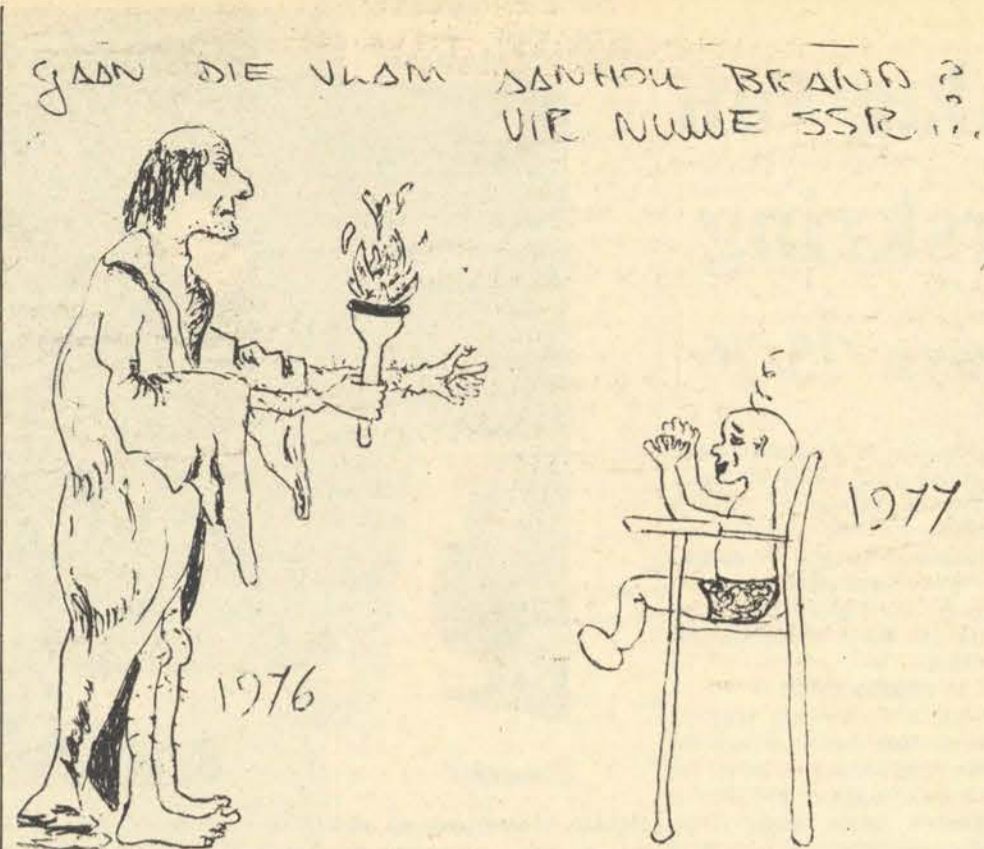 GAAN DIE VLAM AANHOU BRAND?
VIR NUWE SSR...
1977
1976